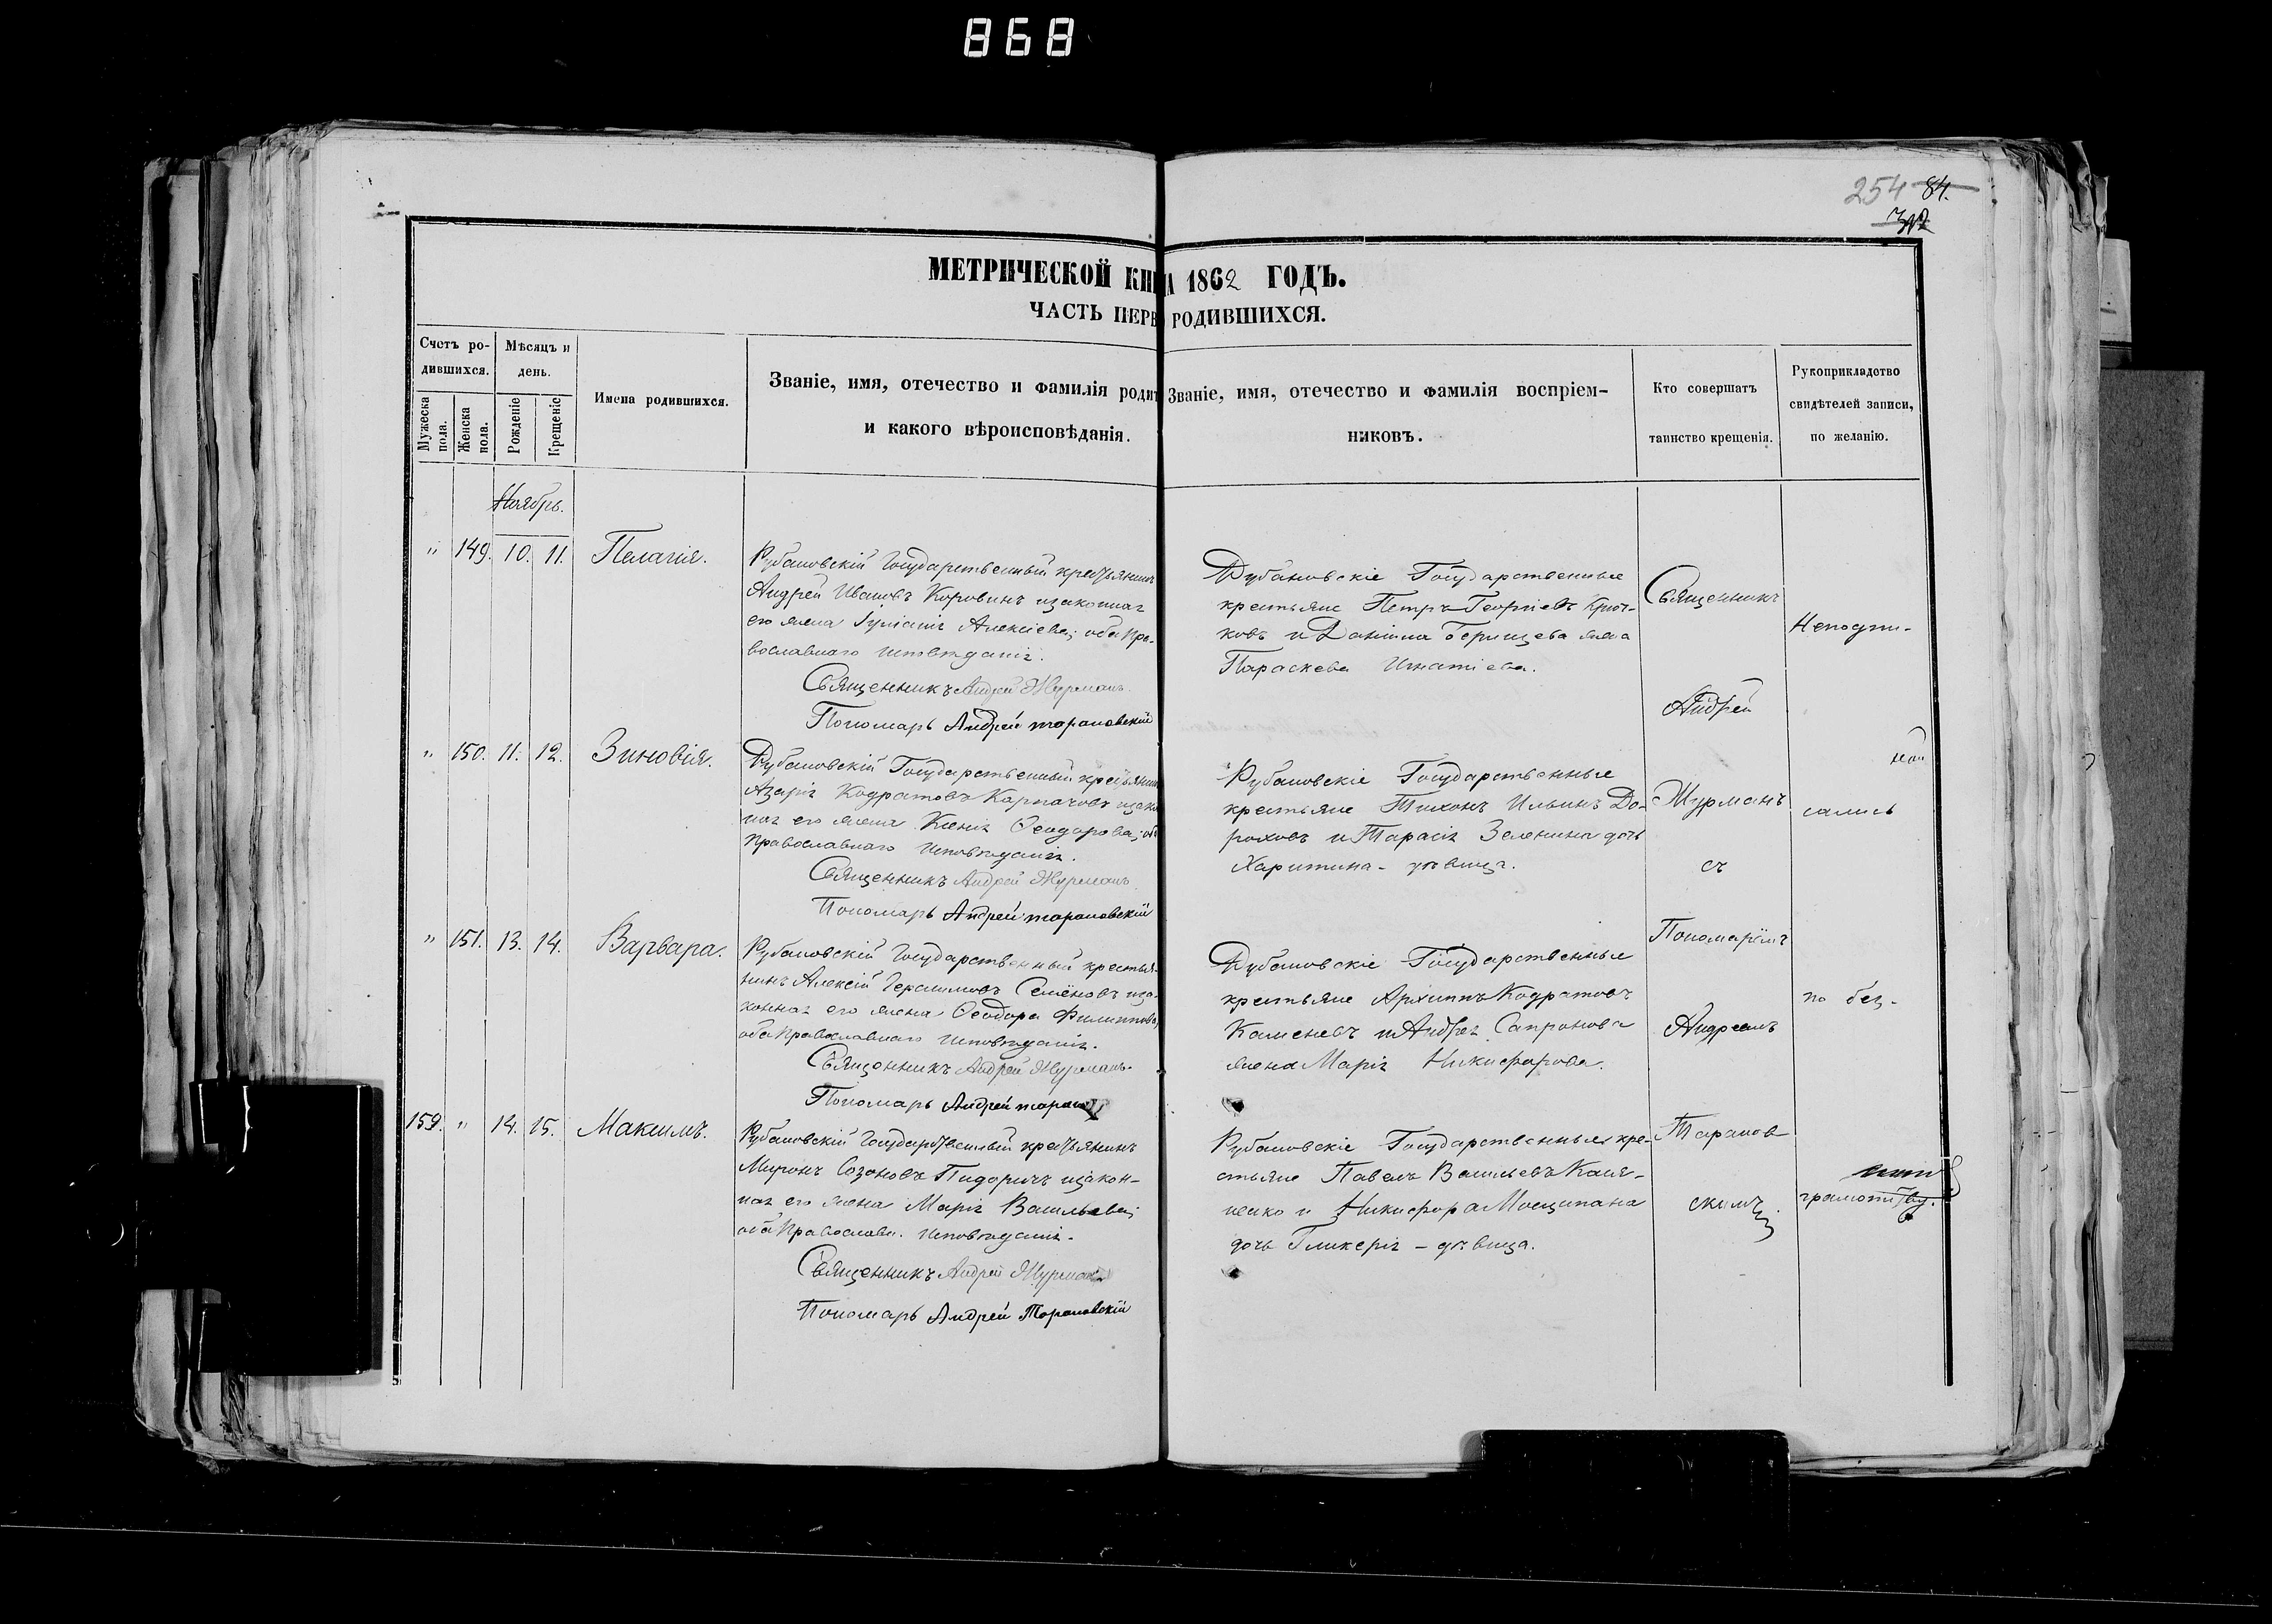 868
254 84.
МЕТРИЧЕСКОЙ КНИ А 1862 ГОДЪ.
ЧАСТЬ ПЕРВ РОДИВШИХСЯ.
Счетъ ро-
дившихся.
Мужеска
пола.
Женска
пола.
Мѣсяцъ и
день.
Рожденіе
Крещеніе
Имена родившихся.
Званіе, имя, отечество и фамилія родит
и какого вѣроисповѣданія.
Званіе, имя, отечество и фамилія воспріем-
никовъ.
Кто совершатъ
таинство крещенія.
Рукоприкладство
свидѣтелей записи,
по желанію.
Ноябрь.
" 149. 10. 11. Пелагія.
Рубановскій Государственный крестьянинъ
Андрей Ивановъ Коровинъ изаконная
его жена Іуліанія Алексіева; оба Пра-
вославнаго исповѣданія.
Священникъ Андрей Журманъ.
Пономарь Андрей тарановскій
Рубановскіе Государственные
крестьяне Петръ Георгіевъ Крюч-
ковъ и Даніила Берищева жена
Параскева Игнатіева.
" 150. 11. 12. Зиновія.
Рубановскій Государственный крестьянинъ
Азарія Кодратовъ Карпачовъ изакон
ная его жена Ксенія Ѳеодорова; оба
Православнаго исповѣданія.
Священникъ Андрей Журманъ.
Пономарь Андрей тарановскій
Рубановскіе Государственные
крестьяне Тихонъ Ильинъ До-
роховъ и Тарасія Зеленина дочь
Харитина - дѣвица.
" 151. 13. 14. Варвара.
Рубановскій Государственный крестья-
нинъ Алексій Герасимовъ Семёновъ иза-
конная его жена Ѳеодора Филиппова,
оба Православнаго исповѣданія.
Священникъ Андрей Журманъ.
Пономарь Андрей таран
Рубановскіе Государственные
крестьяне Архиппъ Кодратовъ
Каменевъ и Андрея Сапронова
жена Марія Никифорова.
159. " 14. 15. Максимъ.
Рубановскій Государственный крестьянинъ
Миронъ Созоновъ Пидоричъ изакон-
ная его жена Марія Васильева;
оба Православн. исповѣданія.
Священникъ Андрей Журманъ
Пономарь Андрей Тарановскій
Рубановскіе Государственные кре-
стьяне Павелъ Васильевъ
и Никифора Мосципана
дочь Гликерія - дѣвица.
Священникъ
Андрей
Журманъ
съ
Пономарёмъ
Андреемъ
Таранов
скимъ.
Неподпи-
сались
по без-
грамотству.